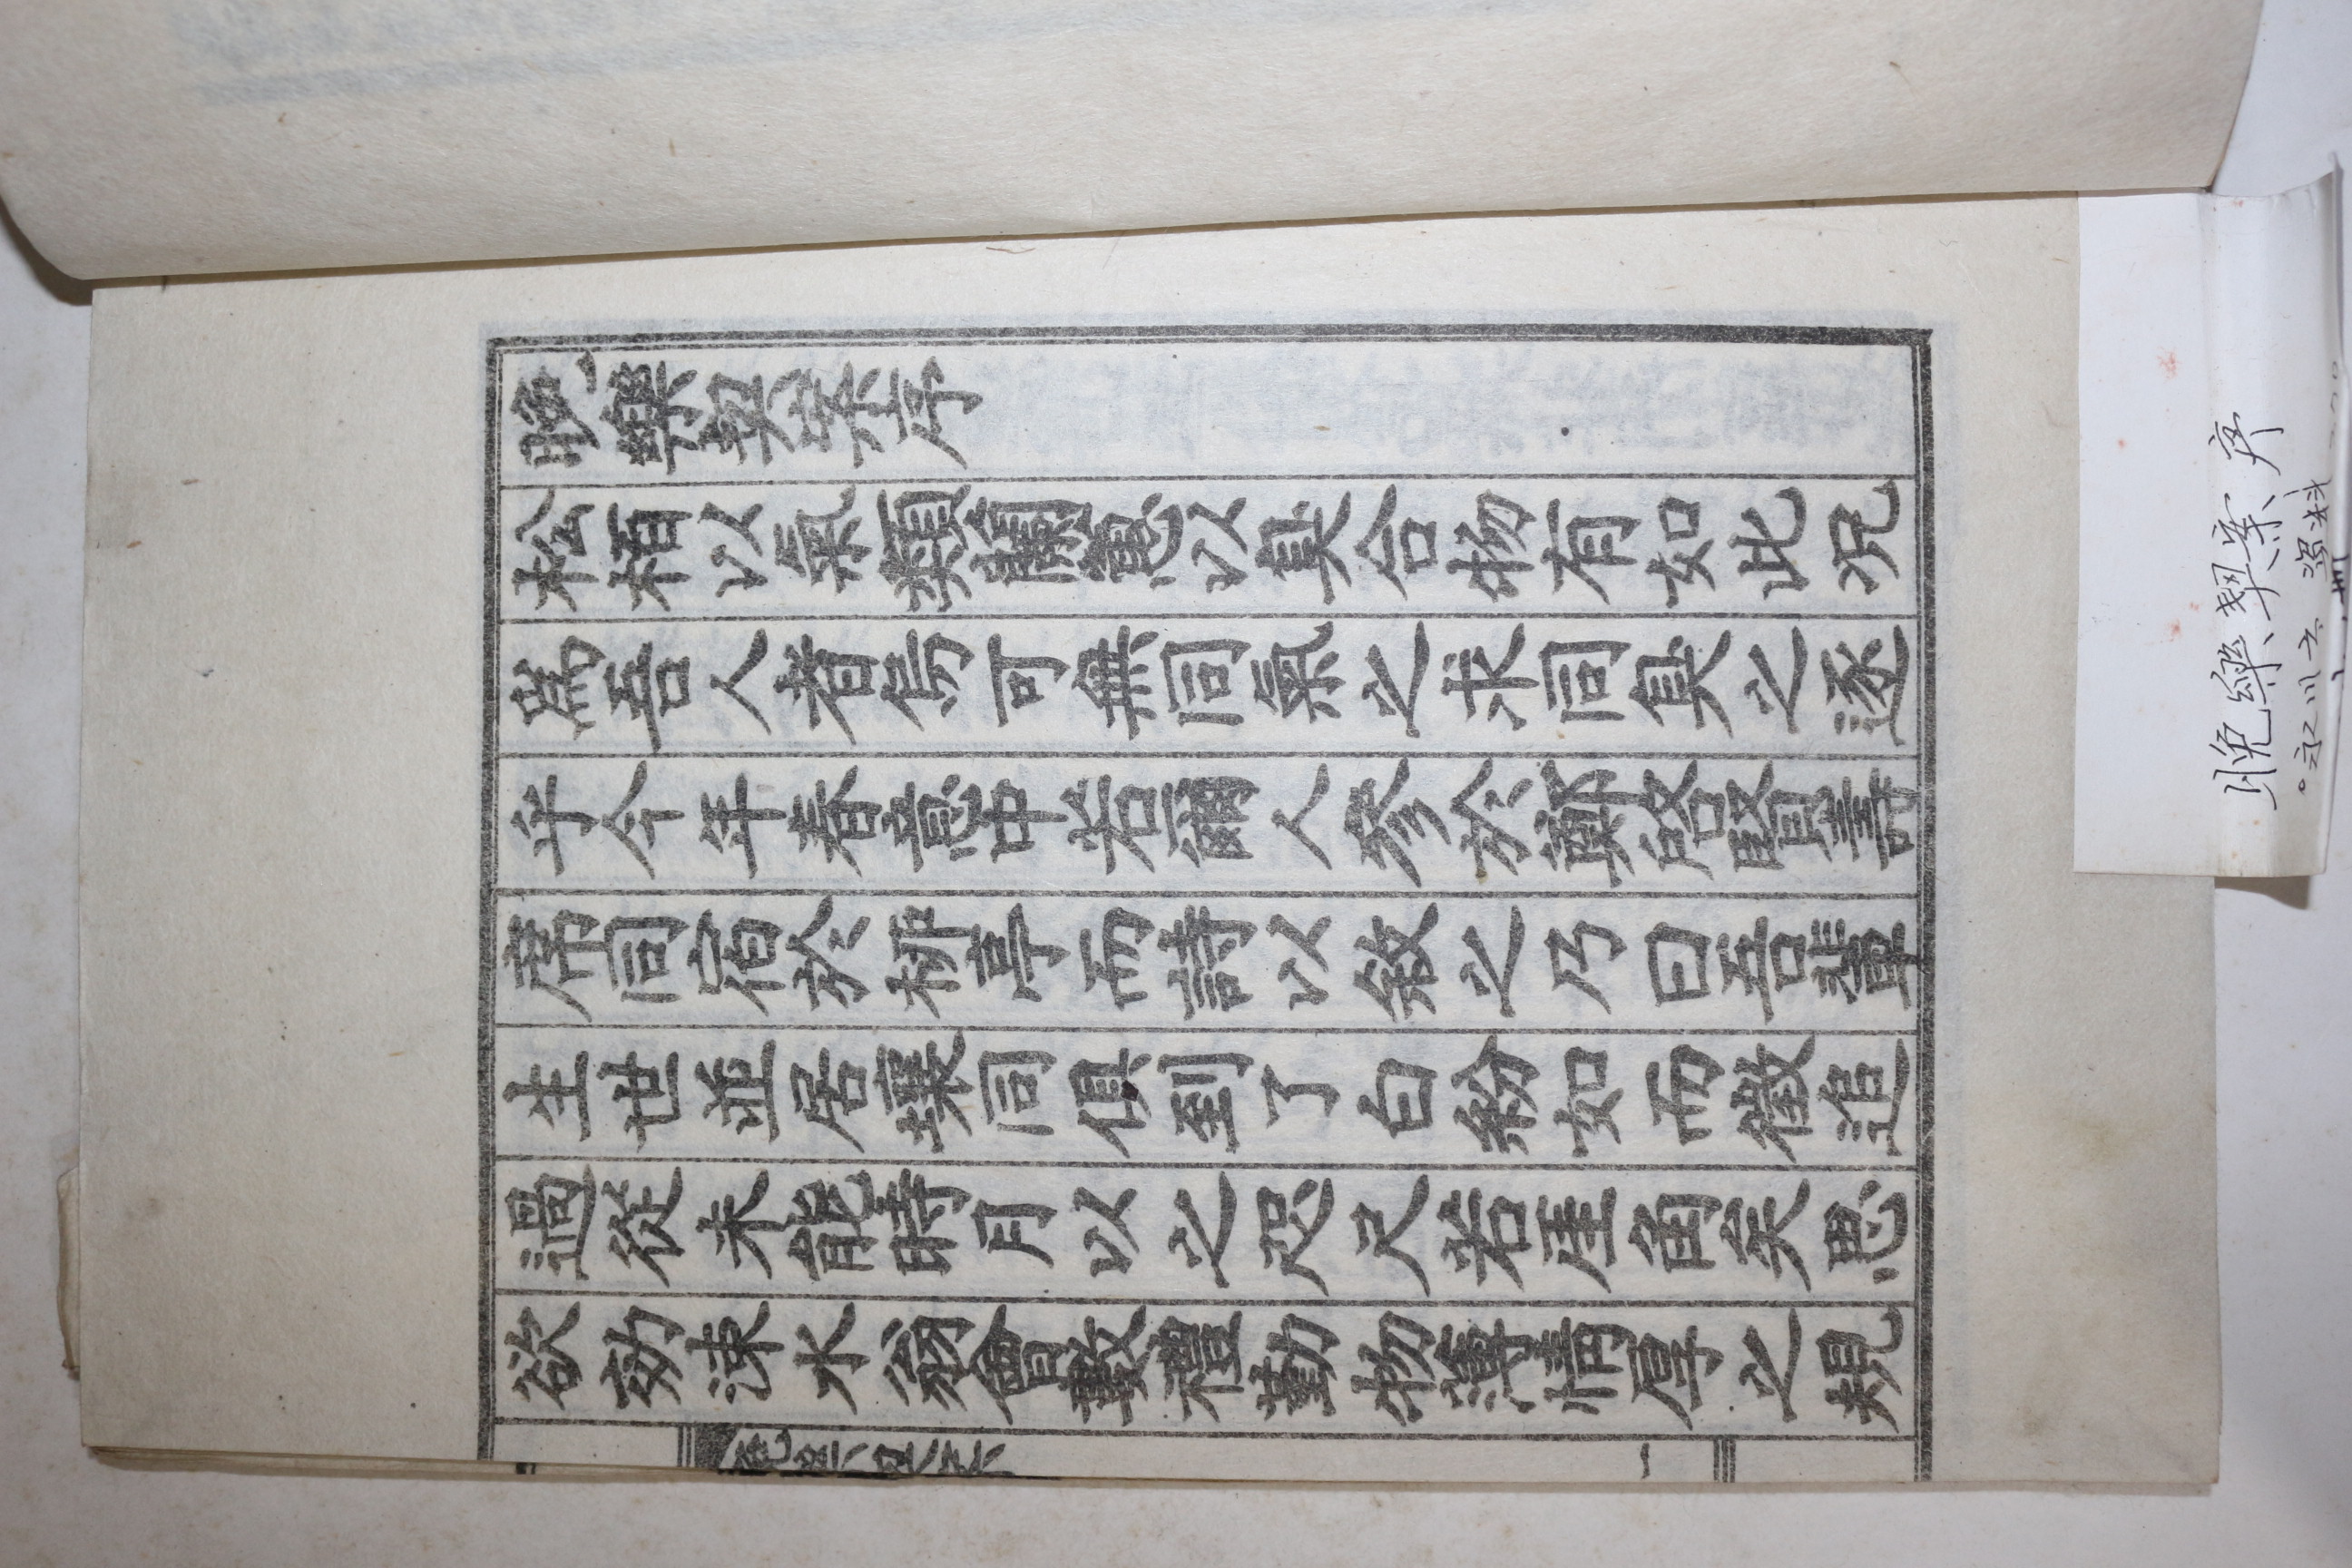 晩樂契案序
松栢以氣類蘭蕙以臭合物有如此况
爲吾人者烏可無同氣之求同臭之逐
乎今年春意中若爾人參於鄭啓賢壽
席同宿於桺亭而詩以敘之乃曰吾輩
生世並居壤同俱到了白紛如而徵追
過從未能時月以之咫尺若厓角矣思
欲効涑水翁會數禮勤物薄情厚之規
晚樂契案
一
晚樂契案序
永川 資料